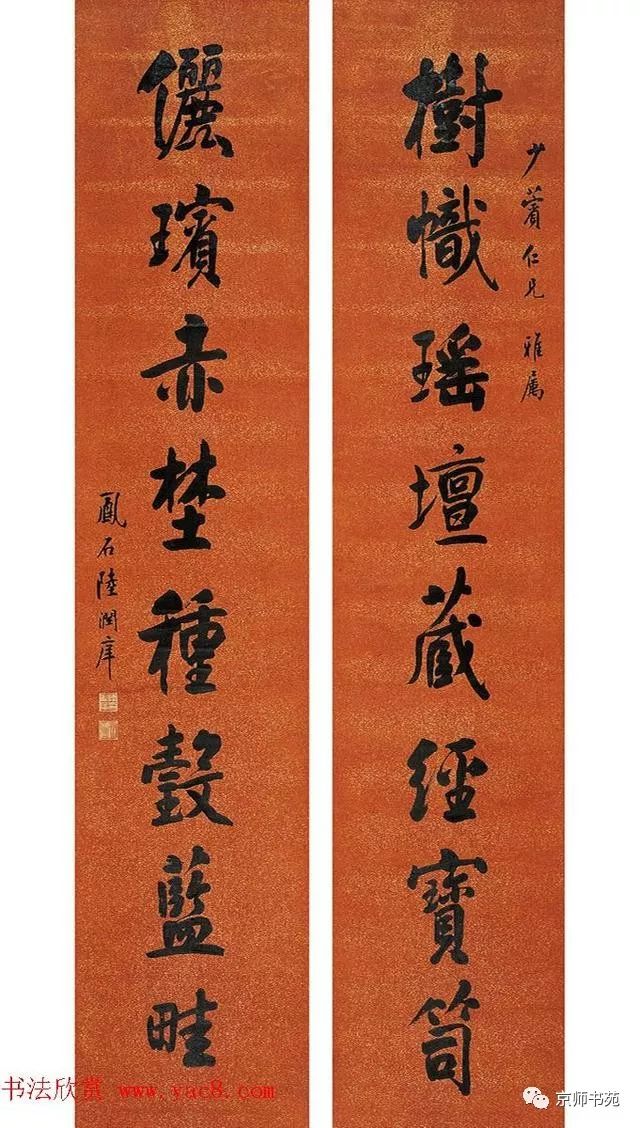 少薲仁兄 雅屬
樹幟瑶壇蔵經寶笥
儷璸赤埜種瑴藍畦
鳳石陸潤庠
书法欣赏 www.yac8.com
京师书苑